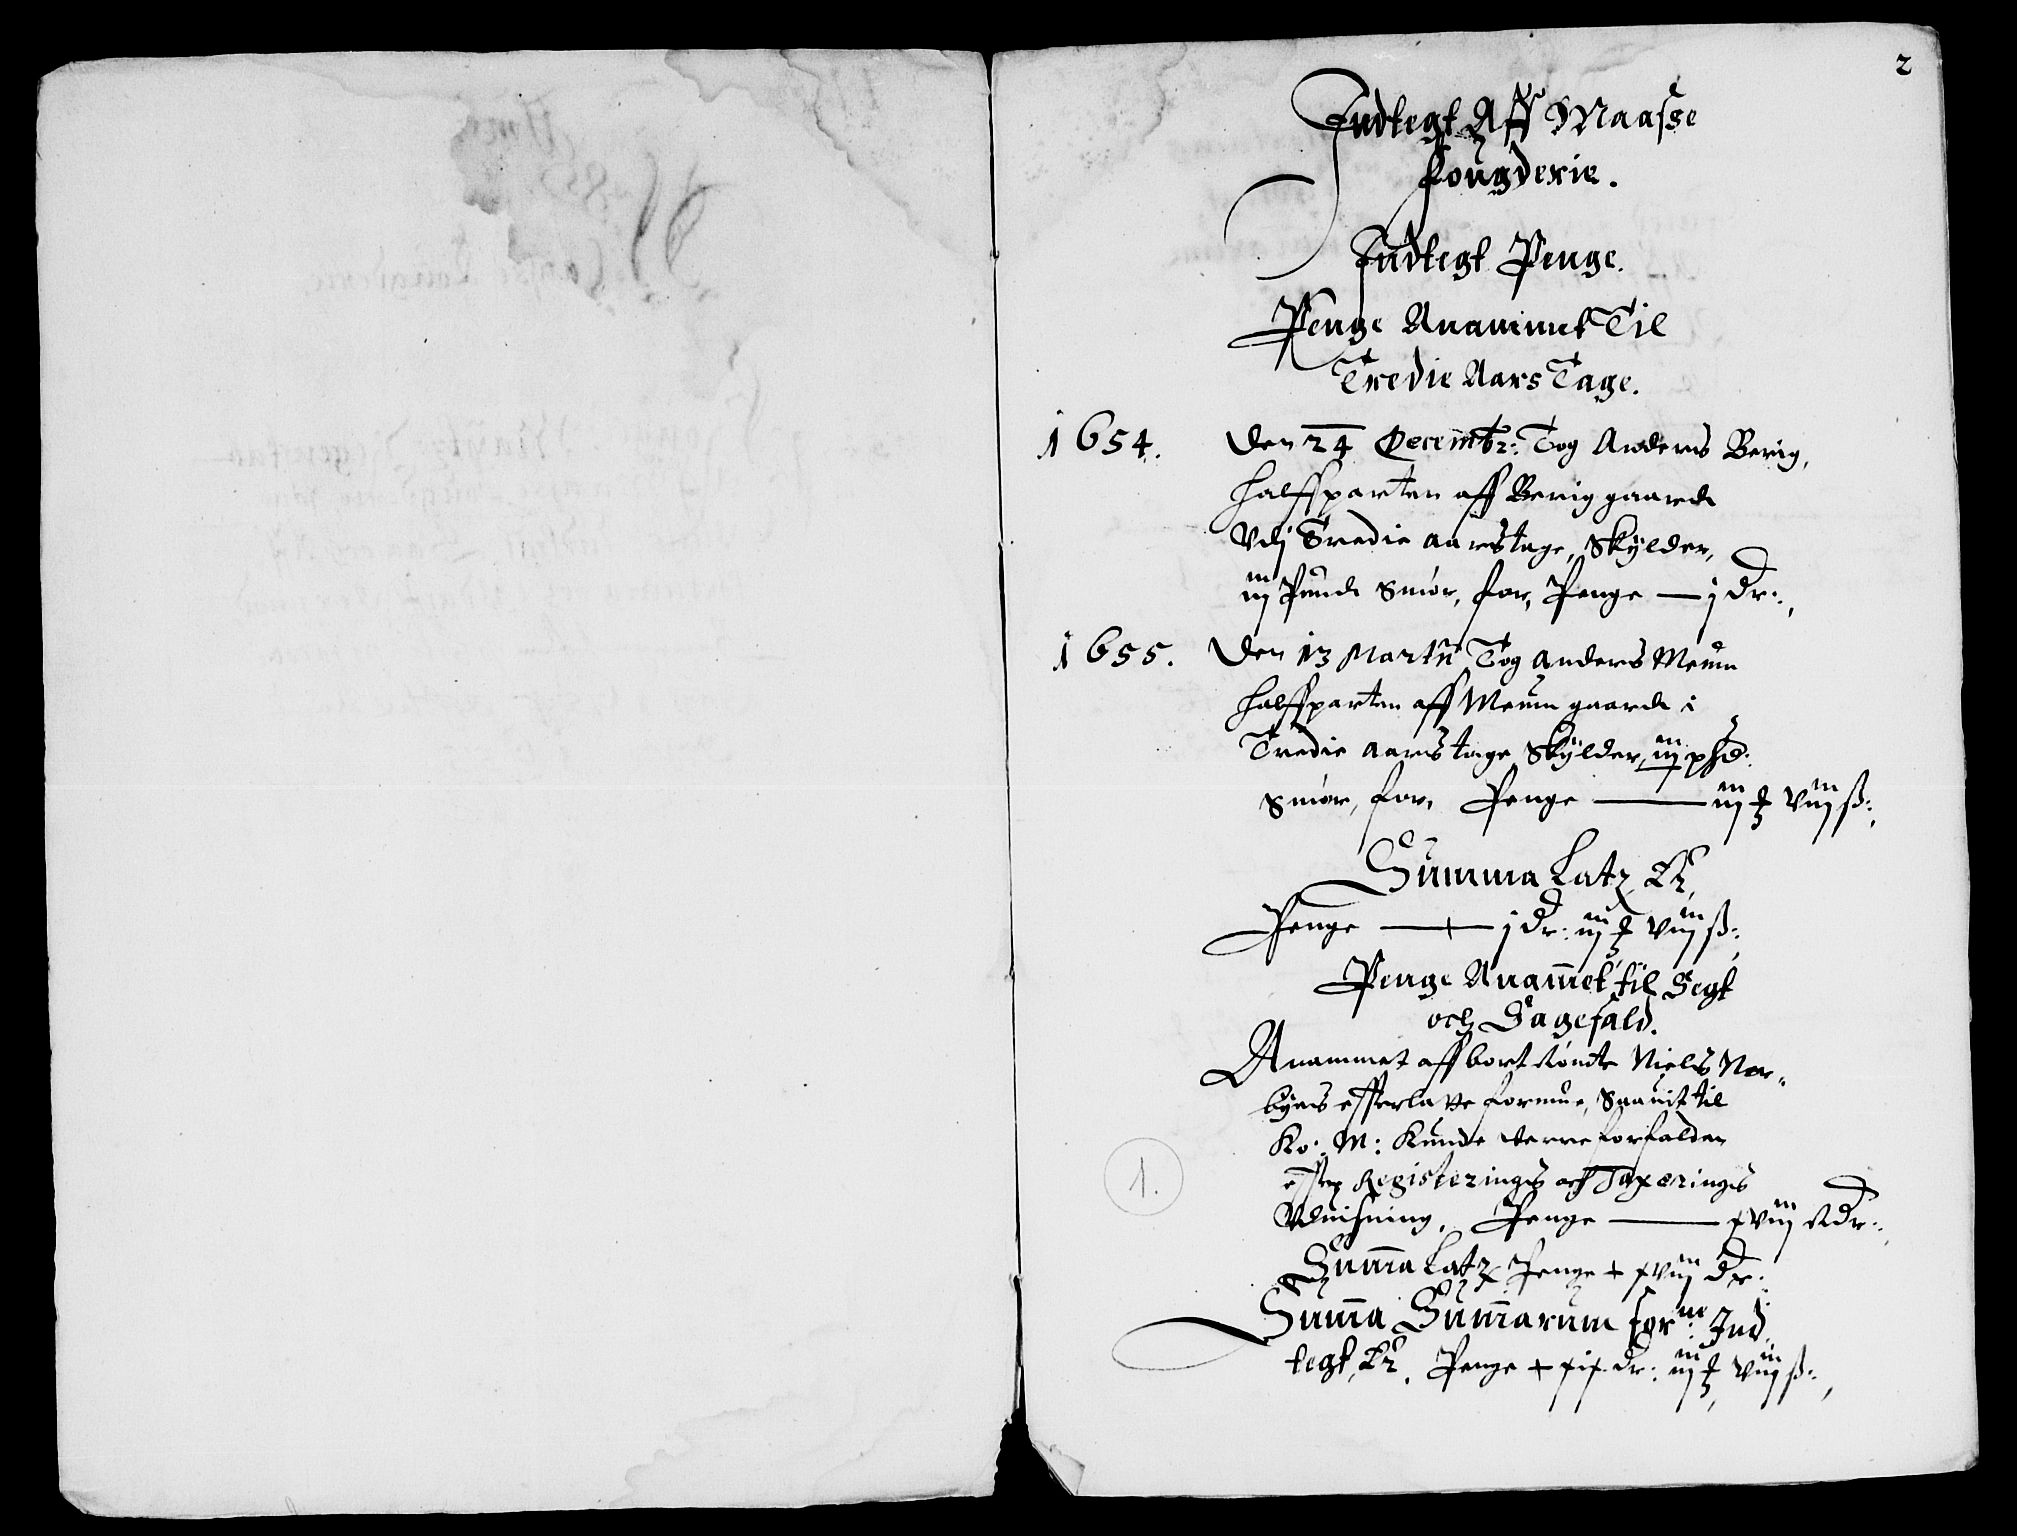 2
Indtegt Aff Maasse
fougderie.
Indtegt Penge.
Penge Anammet Til
Tredie Aars Tage.
1654. Den 24 Decembr: Tog Anders Berig,
halffparten aff Berig gaard
Vdj Tredie aarstage, Skylder,
iij Pund Smör, for, Penge — j dr:
1655. Den 13 Martii Tog anders Meum
halffparten aff Meum gaard i
Tredie aars tage Skylder, iij pd:
Smör, for, Penge — iij viij ß:
Summa Latz Er
Penge — j dr: iij viij ß:
Penge Anammet til Segt
och Sagefald.
Anammet aff bort Römte Niels Nor-
byes efterlatte formue, Saauit til
Ko: M: Kunde verre forfalden
efter Registerings och Taxerings
Vduisning, Penge — xviij Rdr:
Summa Latz Penge + xviij dr:
Summa Summarum for: Ind
tegt, Er. Penge + xix dr: iij viij ß:
1.